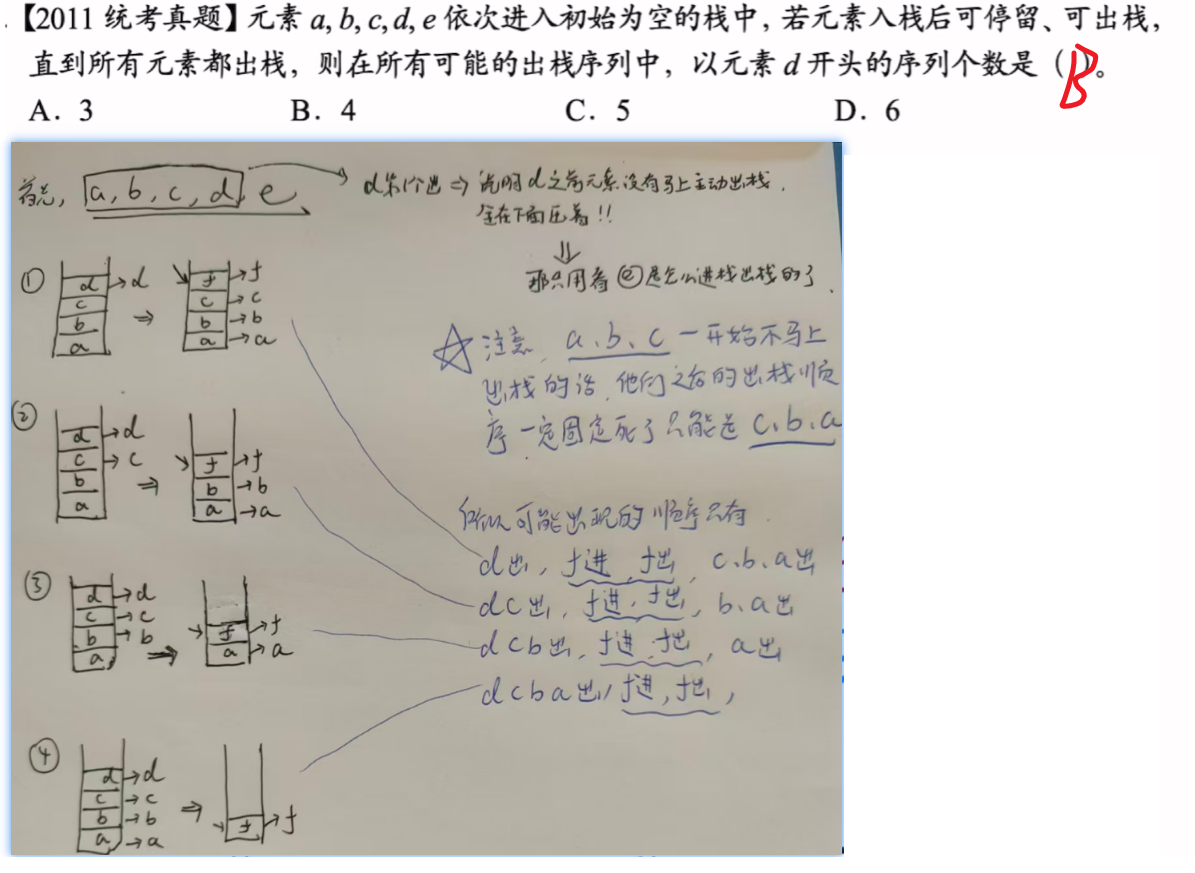 .【2011 统考真题】元素 a, b, c, d, e 依次进入初始为空的栈中，若元素入栈后可停留、可出栈，
直到所有元素都出栈，则在所有可能的出栈序列中，以元素 d 开头的序列个数是（B）。
A．3 B．4 C．5 D．6
首先，a, b, c, d, e → d第1个出 ⇒ 说明d之前元素没有马上主动出栈．
全在下面压着!!
⇓
那只用看ⓔ是怎么进栈出栈的了．
① d → d ⇒ f → f
c c → c
b b → b
a a → a
☆ 注意，a、b、c 一开始不马上
出栈的话，他们之后的出栈顺
序一定固定死了只能是 c、b、a
② d → d
c → c ⇒ f → f
b b → b
a a → a
所以可能出现的顺序只有
d出，f进，f出，c、b、a出
dc出，f进，f出，b、a出
dcb出，f进，f出，a出
dcba出，f进，f出，
③ d → d
c → c
b → b ⇒ f → f
a a → a
④ d → d
c → c
b → b ⇒ f → f
a → a